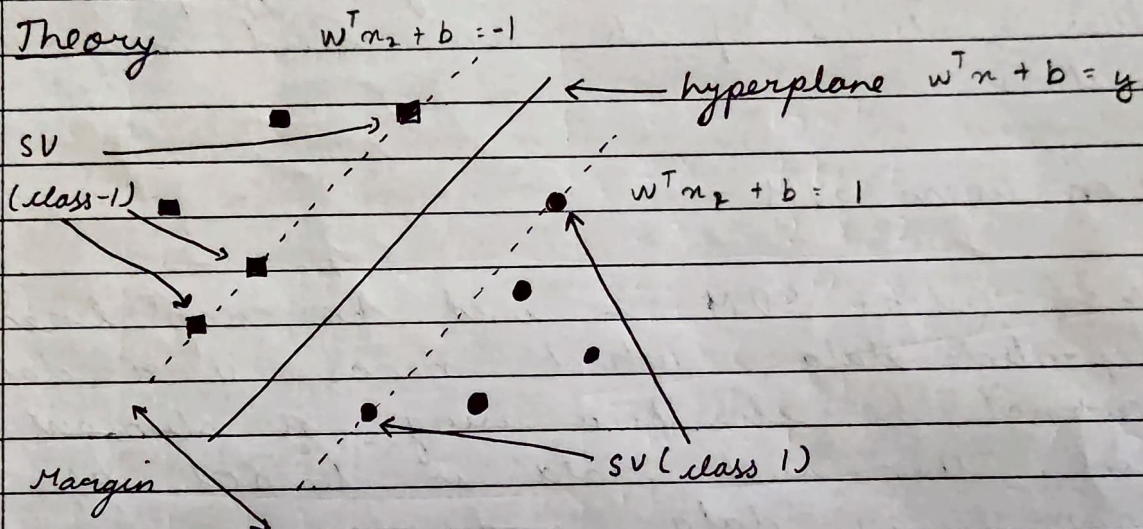 Theory
wᵀx₂ + b = -1
hyperplane wᵀx + b = y
SV
(class-1)
wᵀx₂ + b = 1
SV (class 1)
Margin